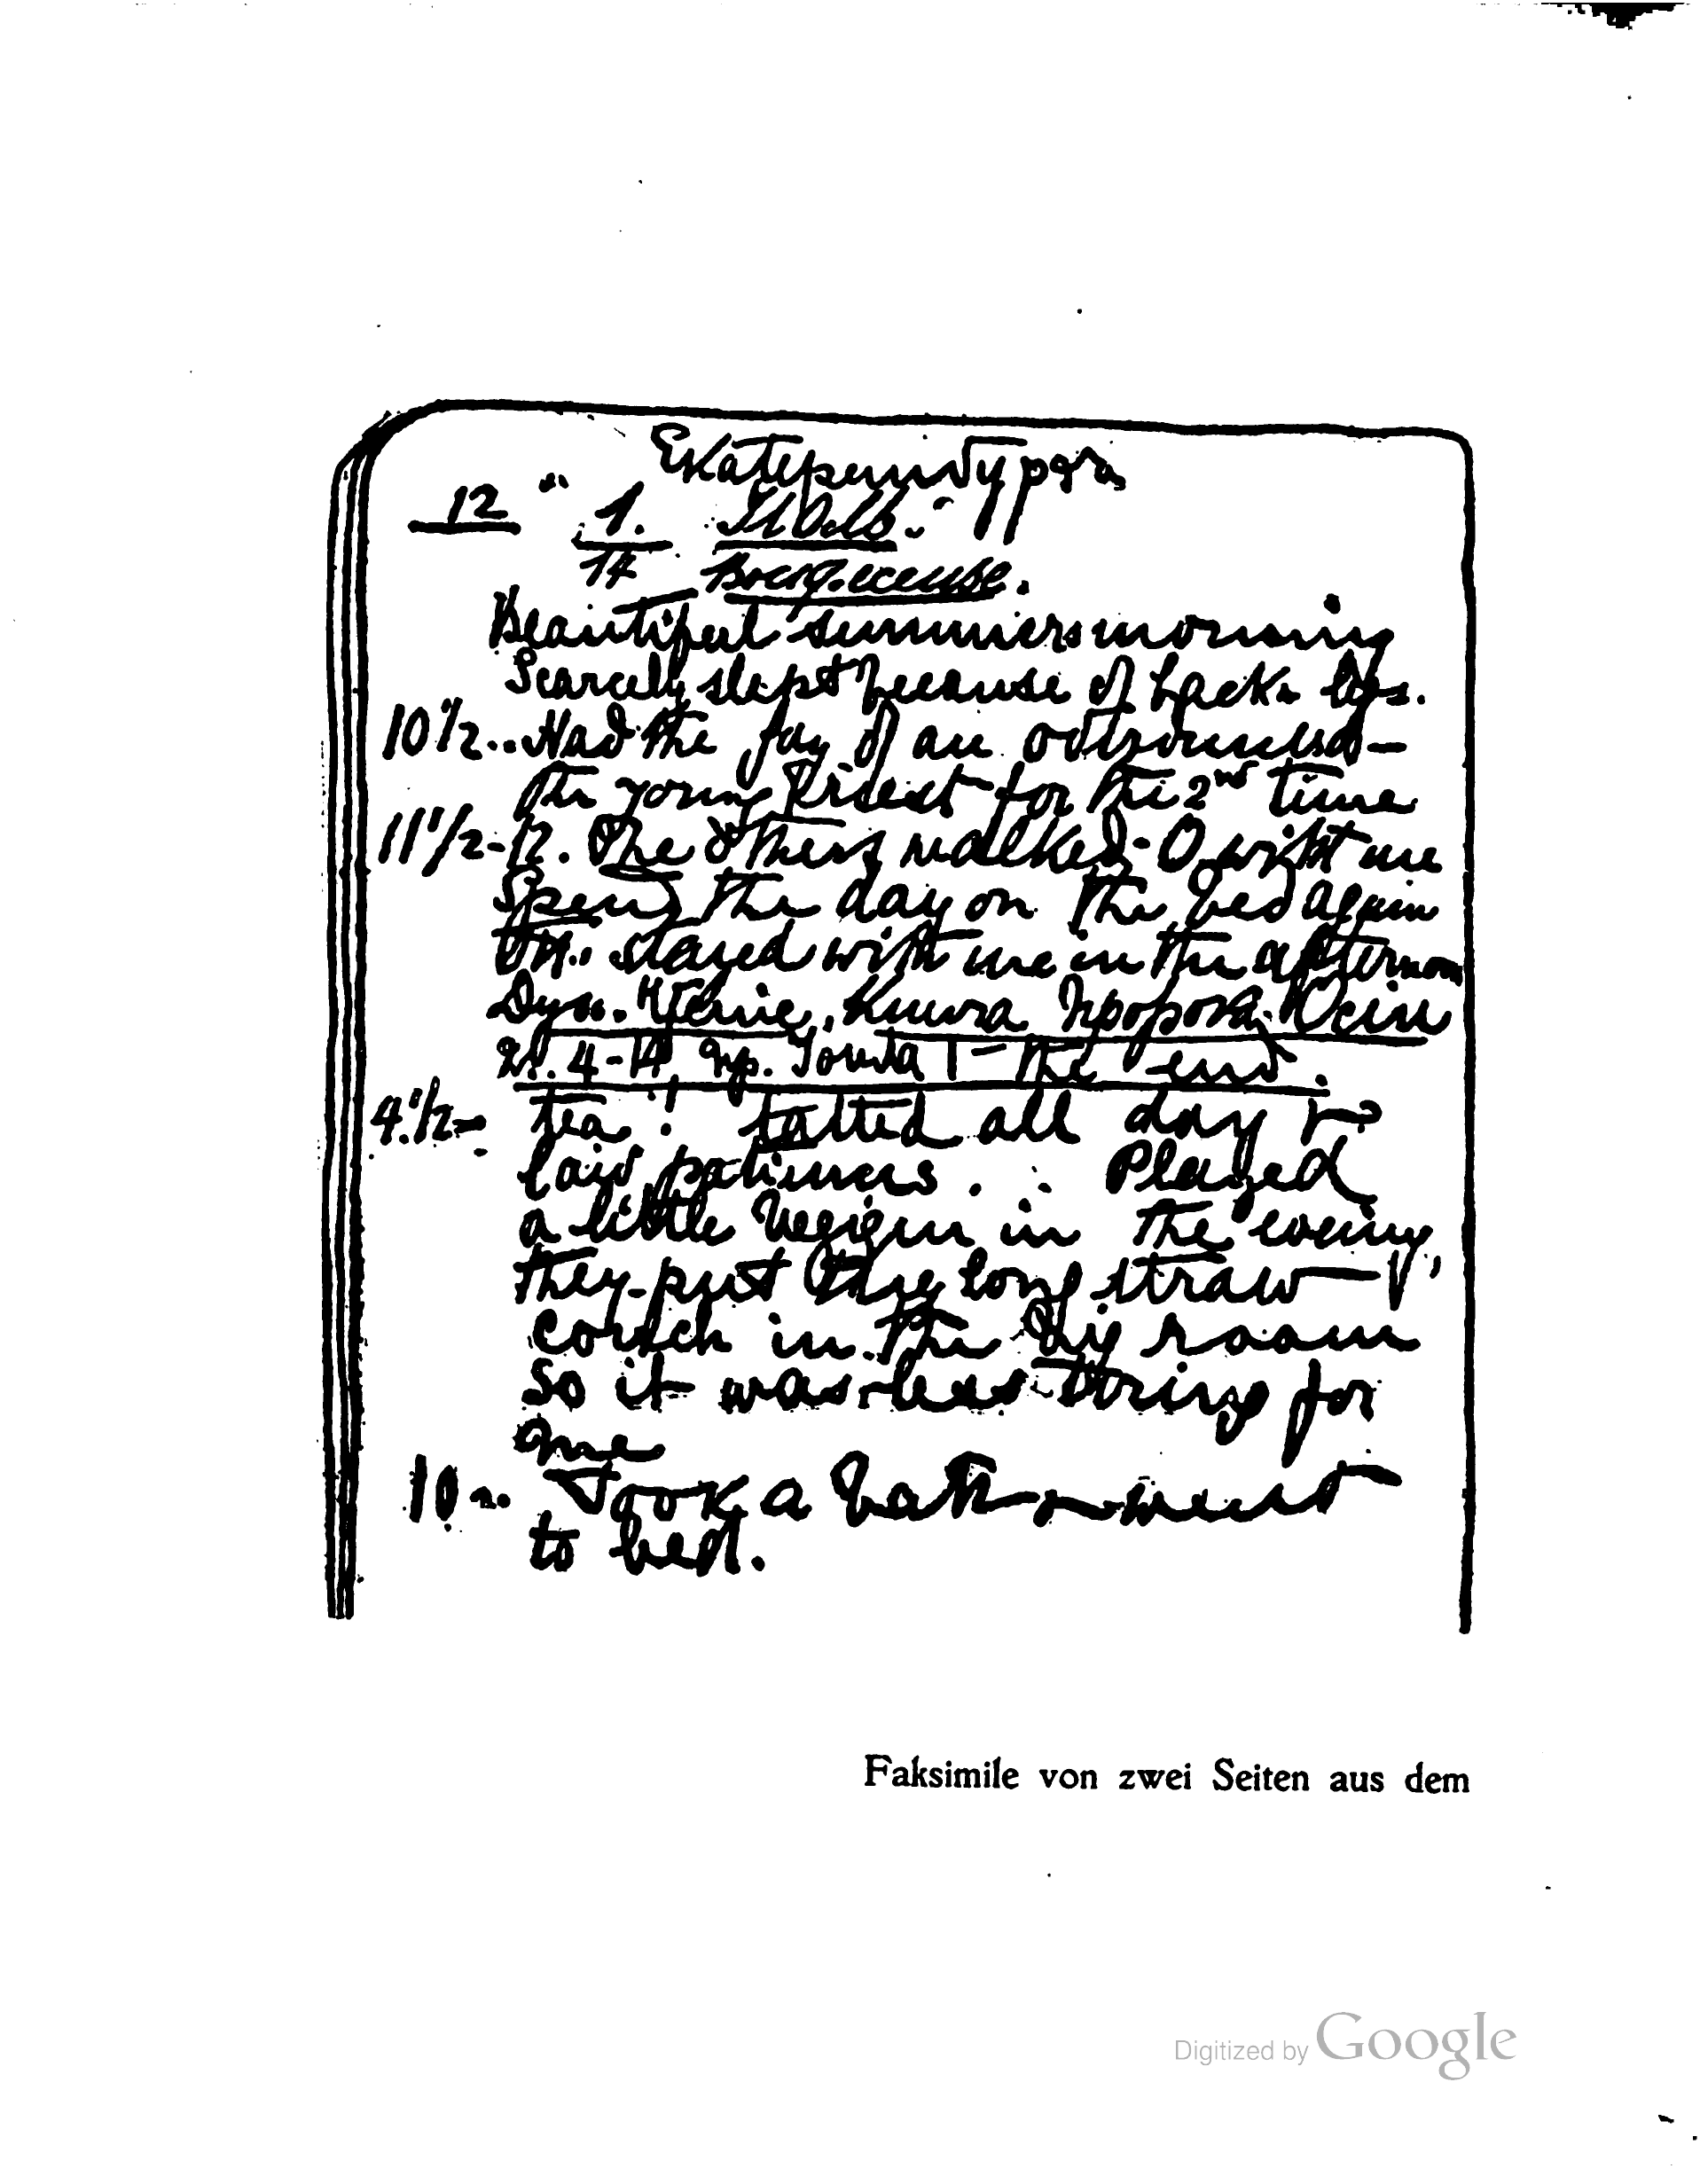 Екатеринбургъ
12 1. Июль.
14 Воскресенье.
Beautiful summers morning
Scarcely slept because of back & legs.
10 1/2.. Had the joy of an обѣдница –
the young Priest for the 2nd time
11 1/2-12. The others walked - O. with me
Spend the day on the bed again
stayed with me in the afternoon
Дух. Чтение, Книга Пророка Осiи
гл. 4-14, пр. Iоиля 1 – the end.
4.1/2- tea! tatted all day &
laid patiences. Played
a little bezique in the evening,
they put my long straw
couch in the big room
so it was less tiring for
me
10 Took a bath & went
to bed.
Faksimile von zwei Seiten aus dem
Digitized by Google